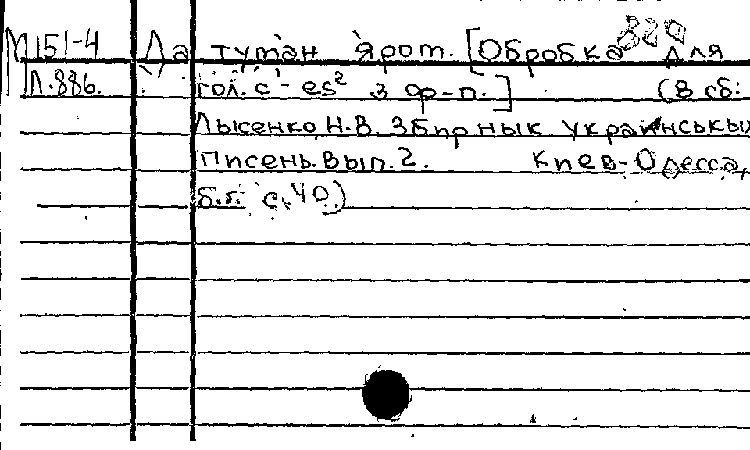 М 151-4 Да туман ярот. [Обробка для
Л.886. гол. c¹- es² з ф-п.] (В сб:
Лысенко, Н.В. Збірнык українськых
писень. Вып. 2. Киев-Одесса,
б.г. с. 40)